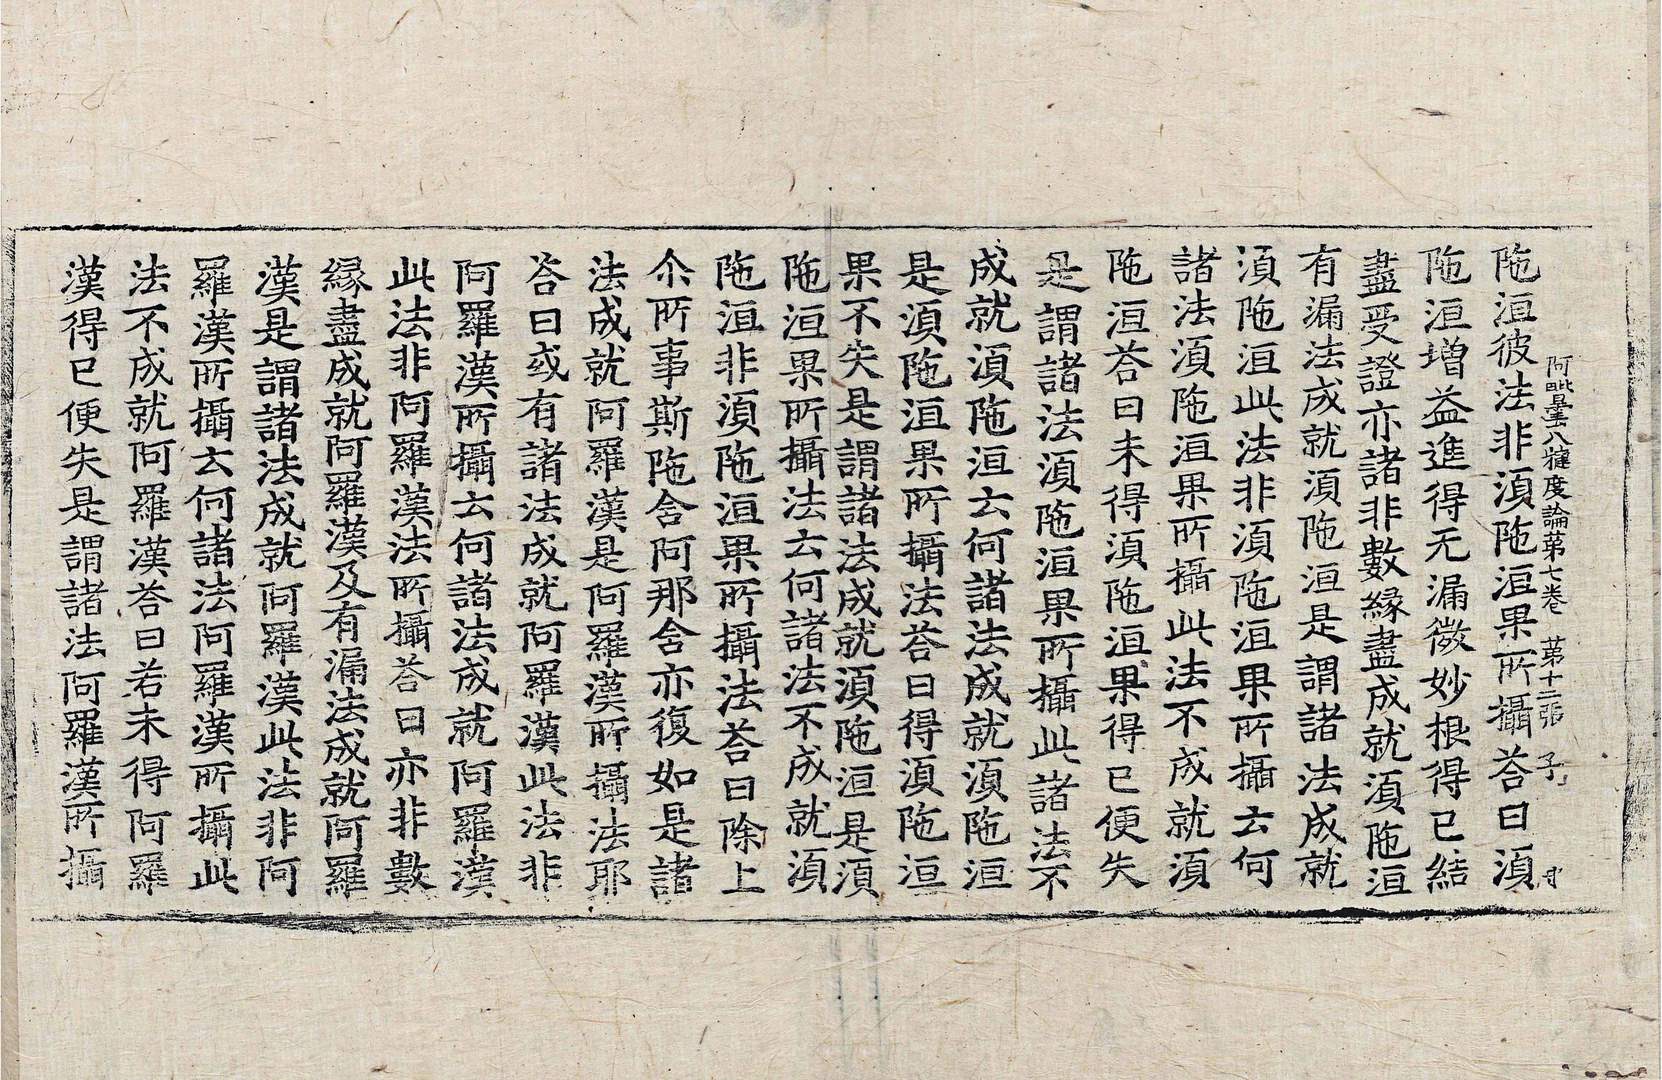 阿毗曇八犍度論第七卷 第十二張 子
陁洹彼法非湏陁洹果所攝荅曰湏
陁洹增益進得无漏微妙根得已結
盡受證亦諸非數緣盡成就湏陁洹
有漏法成就湏陁洹是謂諸法成就
湏陁洹此法非湏陁洹果所攝云何
諸法湏陁洹果所攝此法不成就湏
陁洹荅曰未得湏陁洹果得已便失
是謂諸法湏陁洹果所攝此諸法不
成就湏陁洹云何諸法成就湏陁洹
是湏陁洹果所攝法荅曰得湏陁洹
果不失是謂諸法成就湏陁洹是湏
陁洹果所攝法云何諸法不成就湏
陁洹非湏陁洹果所攝法荅曰除上
尒所事斯陁含阿那含亦復如是諸
法成就阿羅漢是阿羅漢所攝法耶
荅曰或有諸法成就阿羅漢此法非
阿羅漢所攝云何諸法成就阿羅漢
此法非阿羅漢法所攝荅曰亦非數
緣盡成就阿羅漢及有漏法成就阿羅
漢是謂諸法成就阿羅漢此法非阿
羅漢所攝云何諸法阿羅漢所攝此
法不成就阿羅漢荅曰若未得阿羅
漢得已便失是謂諸法阿羅漢所攝